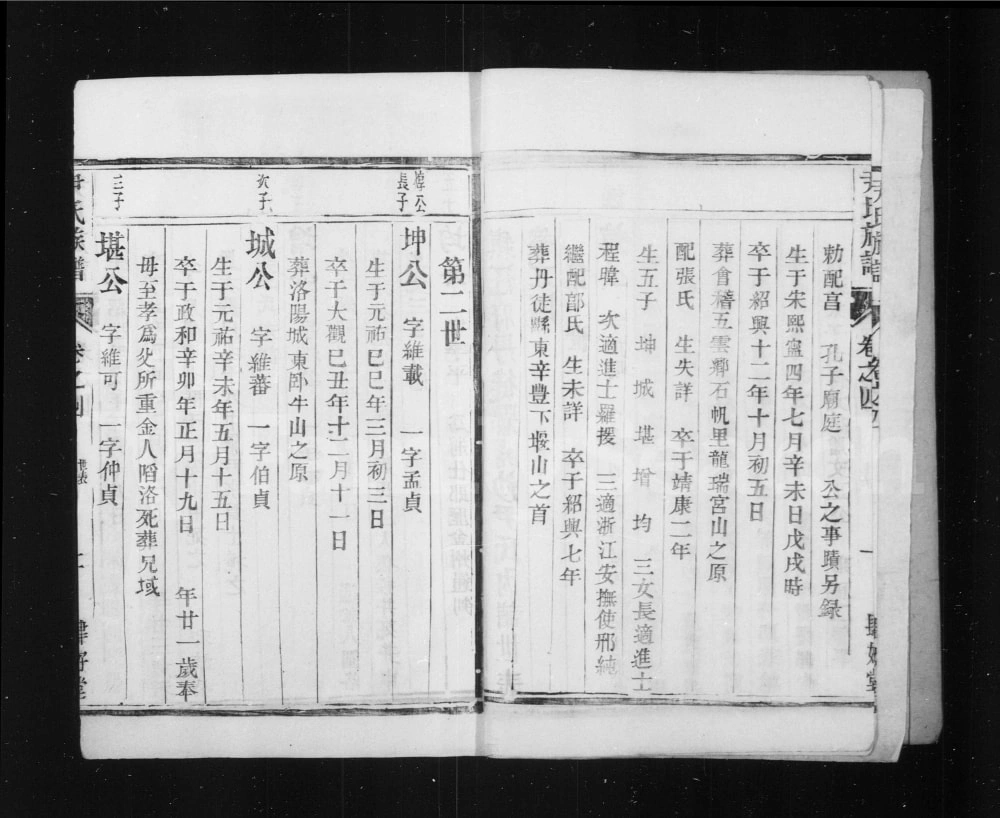 尹氏族譜
卷之
一
肆好堂
勅配享 孔子廟庭 文公之事蹟另錄
生于宋熙寧四年七月辛未日戊戌時
卒于紹興十二年十月初五日
葬會稽五雲鄉石帆里龍瑞宮山之原
配張氏 生失詳 卒于靖康二年
生五子 坤 城 堪 增 均 三女長適進士
程暐 次適進士羅援 三適浙江安撫使邢純
繼配部氏 生未詳 卒于紹興七年
葬丹徒縣東辛豐下堰山之首
第二世
焞公長子
坤公 字維載 一字孟貞
生于元祐巳巳年三月初三日
卒于大觀巳丑年十二月十一日
葬洛陽城東卧牛山之原
次子
城公 字維蕃 一字伯貞
生于元祐辛未年五月十五日
卒于政和辛卯年正月十九日 年廿一歲奉
母至孝為父所重金人䧟洛死葬兄域
三子
堪公 字維可 一字仲貞
尹氏族譜
卷之
世表
肆好堂